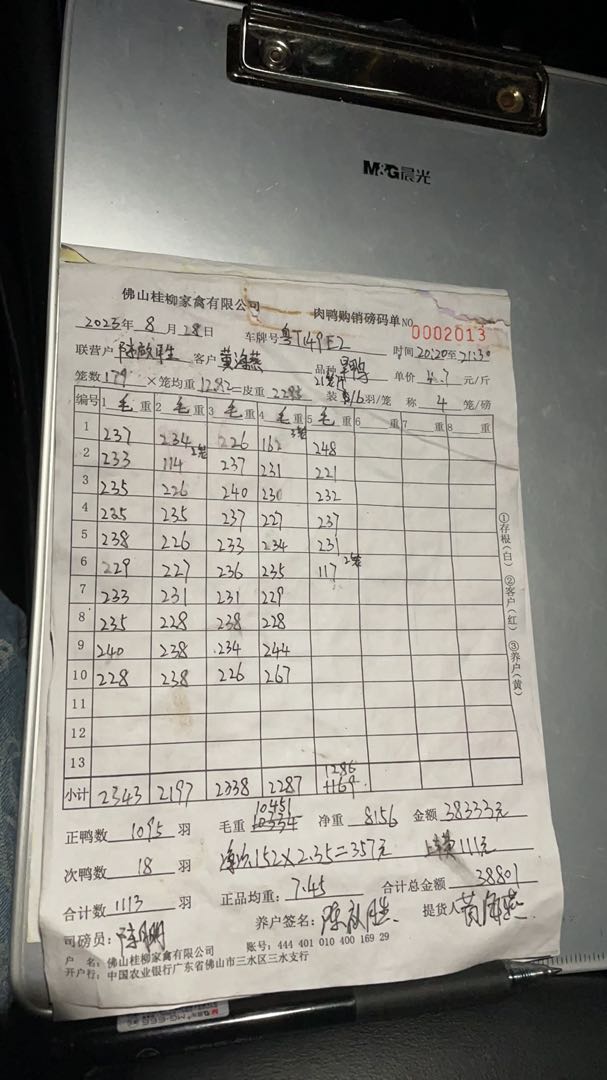 M&G晨光
佛山桂柳家禽有限公司 肉鸭购销磅码单 NO 0002013
2023年 8月 28日 车牌号 粤T149E2 时间 20:20至21:30
联营户 客户 黄海燕 品种 单价 4.7 元/斤
笼数 179 ×笼均重 12.82=皮重 2295 装 /6 羽/笼 称 4 笼/磅
编号 1 毛 重 2 毛 重 3 毛 重 4 毛 重 5 毛 重 6 重 7 重 8 重
1 237 234 226 162 3笼 248
2 233 114 2笼 237 231 221
3 235 226 240 230 232
4 235 235 237 227 237
5 238 226 233 234 231
6 229 227 236 235 117 2笼
7 233 231 231 229
8 235 228 238 228
9 240 238 234 244
10 228 238 226 267
11
12
13
小计 2343 2197 2338 2287 1286 +169
正鸭数 1095 羽 毛重 10451 10334 净重 8156 金额 38333元
次鸭数 18 羽 152×2.35=357元 111元
合计数 1113 羽 正品均重: 7.45 合计总金额 38801
司磅员: 养户签名: 提货人 黄海燕
户 名: 佛山桂柳家禽有限公司 账号: 444 401 010 400 169 29
开户行: 中国农业银行广东省佛山市三水区三水支行
①存根(白) ②客户(红) ③养户(黄)